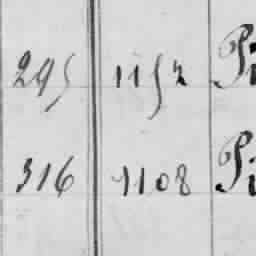 295 1152 Pi
316 1108 Pi